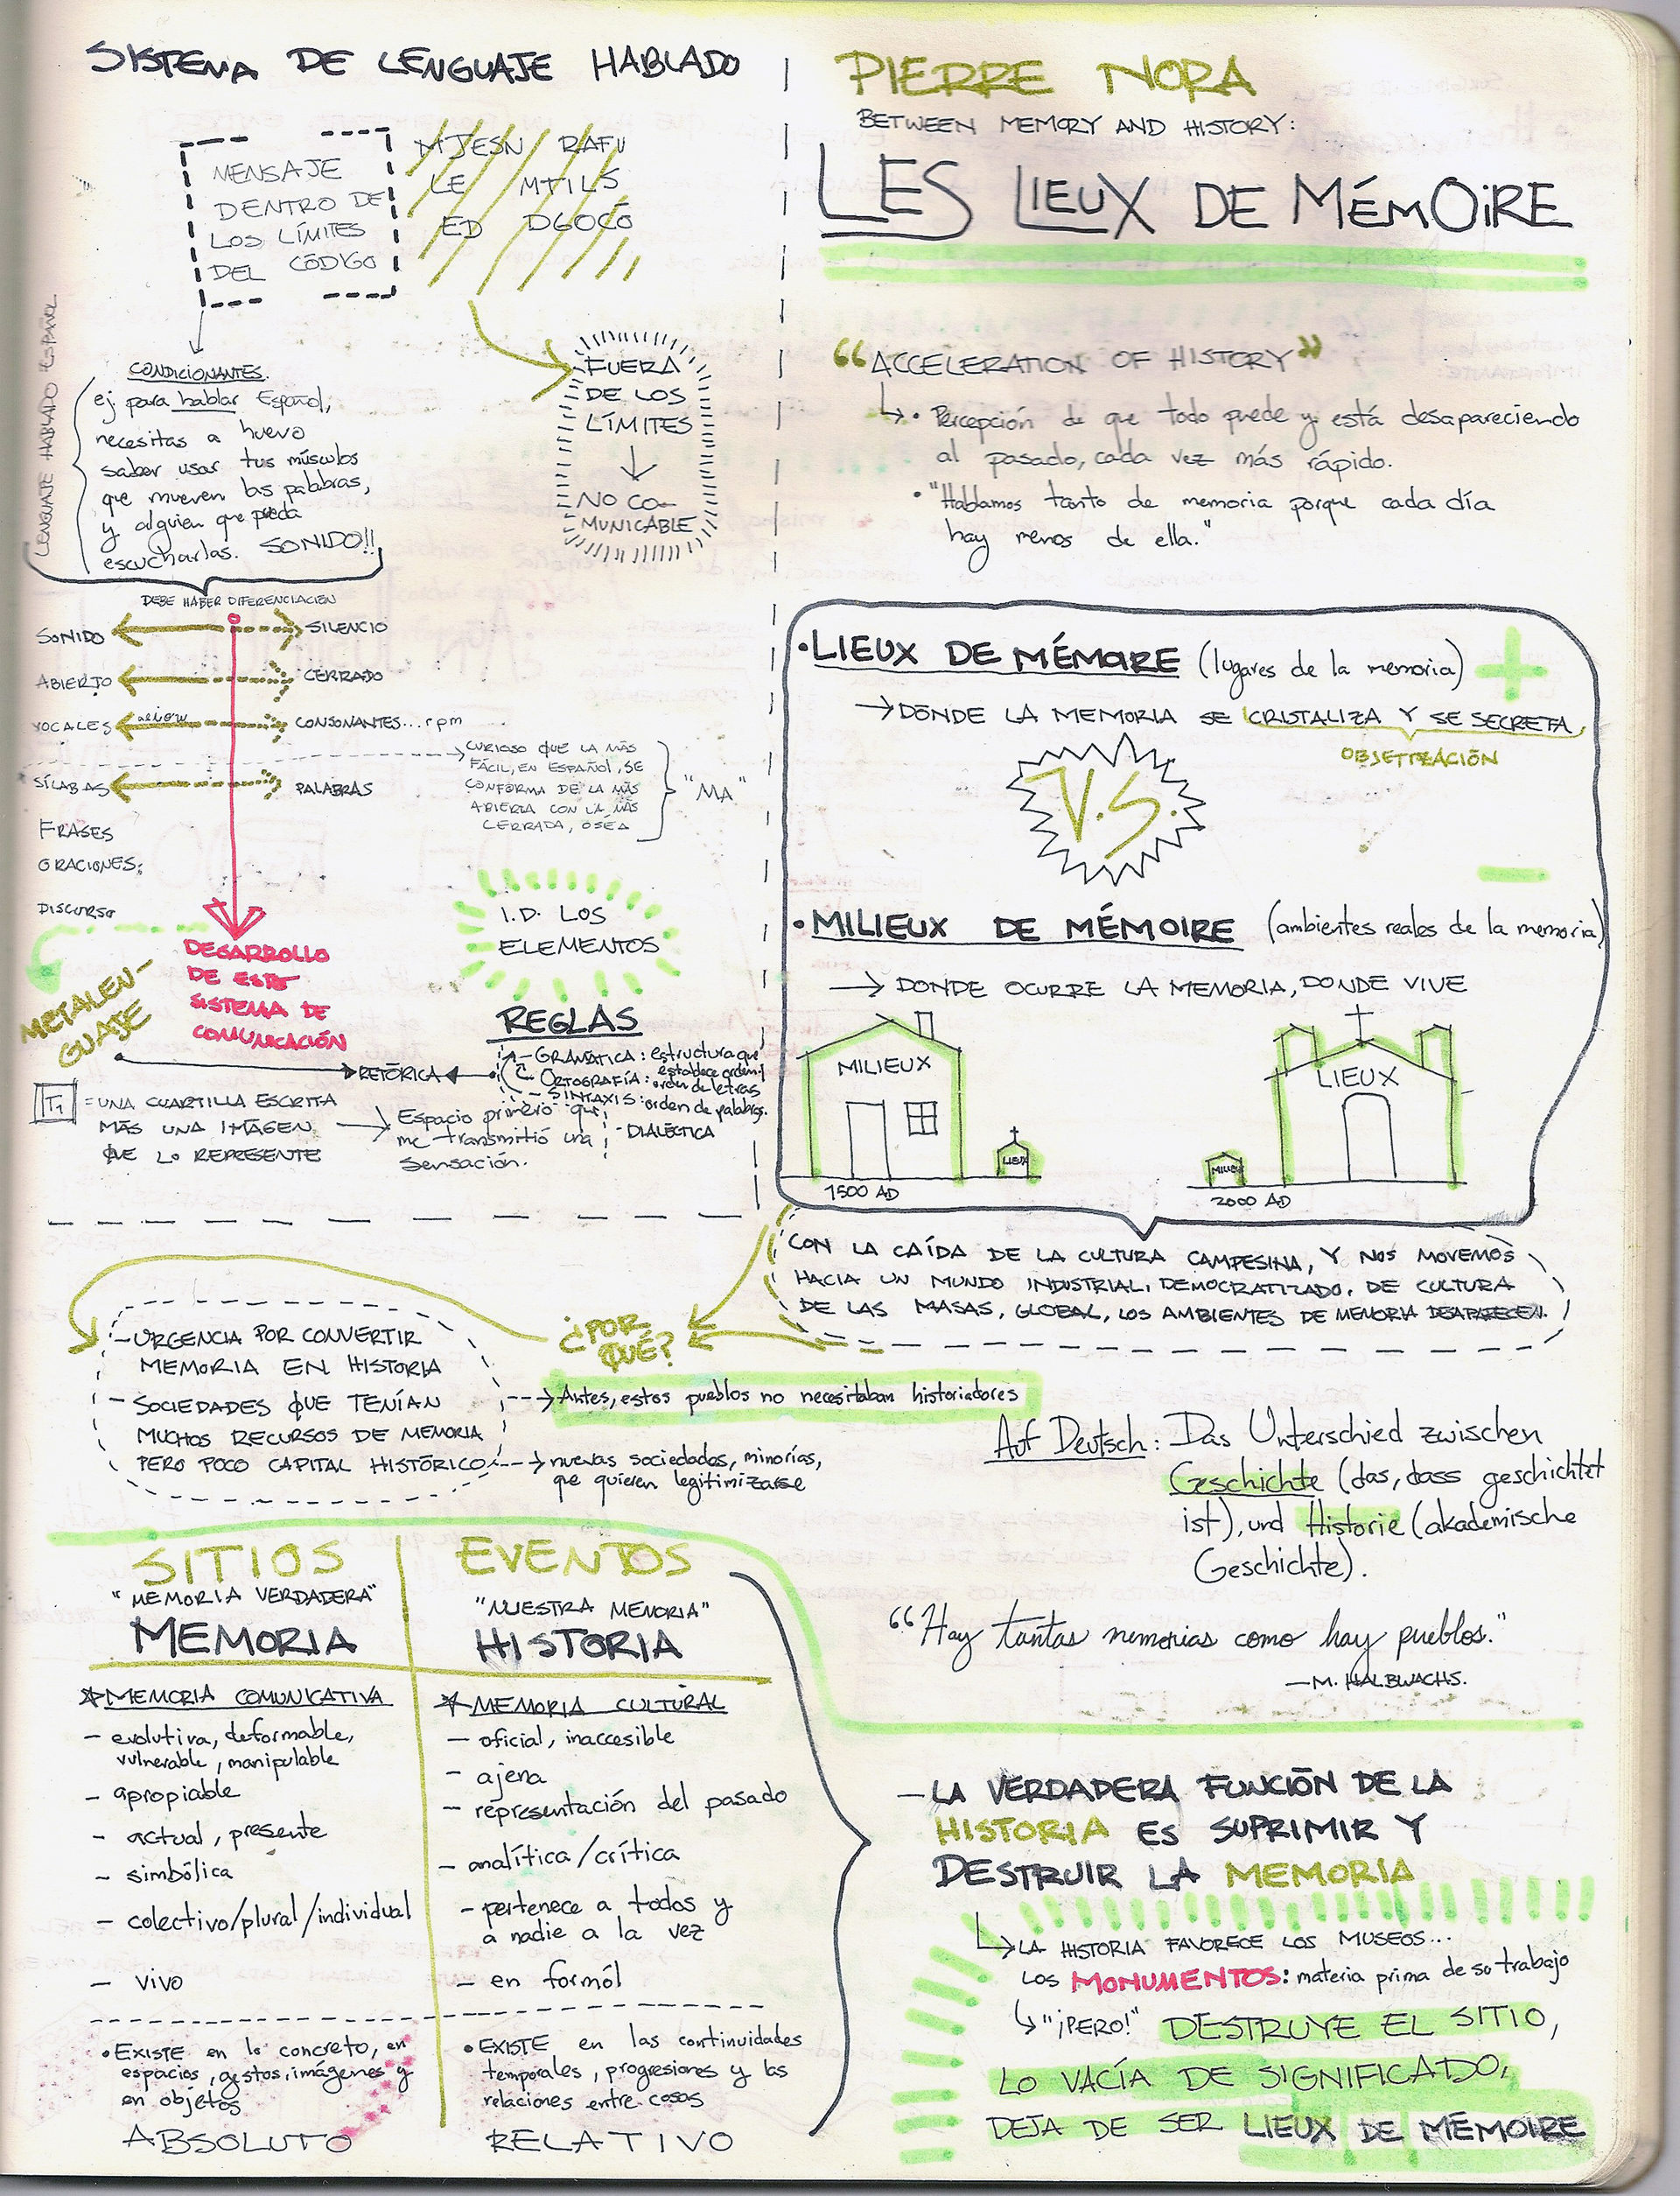 SISTEMA DE LENGUAJE HABLADO
MENSAJE
DENTRO DE
LOS LÍMITES
DEL CÓDIGO
MJESN RAFU
LE MTILS
ED DGOCO
FUERA
DE LOS
LÍMITES
NO CO-
MUNICABLE
LENGUAJE HABLADO ESPAÑOL
CONDICIONANTES.
ej. para hablar Español,
necesitas a huevo
saber usar tus músculos
que mueven las palabras,
y alguien que pueda
escucharlas. SONIDO!!
DEBE HABER DIFERENCIACIÓN
SONIDO SILENCIO
ABIERTO CERRADO
VOCALES aeiou CONSONANTES... rpm
CURIOSO QUE LA MÁS
FÁCIL, EN ESPAÑOL, SE
CONFORMA DE LA MÁS
ABIERTA CON LA MÁS
CERRADA, OSÉA
"MA"
SÍLABAS PALABRAS
FRASES
ORACIONES:
DISCURSO
METALEN-
GUAJE
DESARROLLO
DE ESTE
SISTEMA DE
COMUNICACIÓN
I.D. LOS
ELEMENTOS
REGLAS
- GRAMÁTICA: estructura que
establece orden
ORTOGRAFÍA: orden de letras
- SINTAXIS: orden de palabras.
- DIALÉCTICA
RETÓRICA
T1 = UNA CUARTILLA ESCRITA
MÁS UNA IMÁGEN
QUE LO REPRESENTE
Espacio primero que
me transmitió una
sensación.
PIERRE NORA
BETWEEN MEMORY AND HISTORY:
LES LIEUX DE MÉMOIRE
"ACCELERATION OF HISTORY"
• Percepción de que todo puede y está desapareciendo
al pasado, cada vez más rápido.
• "Hablamos tanto de memoria porque cada día
hay menos de ella."
• LIEUX DE MÉMOIRE (lugares de la memoria) +
DÓNDE LA MEMORIA SE CRISTALIZA Y SE SECRETA
OBJETIVACIÓN
V.S.
-
• MILIEUX DE MÉMOIRE (ambientes reales de la memoria)
DONDE OCURRE LA MEMORIA, DONDE VIVE
MILIEUX
LIEUX
1500 AD
MILIEUX
LIEUX
2000 AD
CON LA CAÍDA DE LA CULTURA CAMPESINA, Y NOS MOVEMOS
HACIA UN MUNDO INDUSTRIAL, DEMOCRATIZADO, DE CULTURA
DE LAS MASAS, GLOBAL, LOS AMBIENTES DE MEMORIA DESAPARECEN.
¿POR
QUÉ?
- URGENCIA POR CONVERTIR
MEMORIA EN HISTORIA
- SOCIEDADES QUE TENÍAN
MUCHOS RECURSOS DE MEMORIA
PERO POCO CAPITAL HISTÓRICO
Antes, estos pueblos no necesitaban historiadores
nuevas sociedades, minorías,
que quieren legitimizarse
Auf Deutsch: Das Unterschied zwischen
Geschichte (das, dass geschichtet
ist), und Historie (akademische
Geschichte).
"Hay tantas memorias como hay pueblos."
— M. HALBWACHS.
SITIOS
"MEMORIA VERDADERA"
MEMORIA
* MEMORIA COMUNICATIVA
- evolutiva, deformable,
vulnerable, manipulable
- apropiable
- actual, presente
- simbólica
- colectivo/plural/individual
- vivo
• EXISTE en lo concreto, en
espacios, gestos, imágenes y
en objetos
ABSOLUTO
EVENTOS
"NUESTRA MEMORIA"
HISTORIA
* MEMORIA CULTURAL
- oficial, inaccesible
- ajena
- representación del pasado
- analítica/crítica
- pertenece a todos y
a nadie a la vez
- en formól
• EXISTE en las continuidades
temporales, progresiones y las
relaciones entre cosas
RELATIVO
- LA VERDADERA FUNCIÓN DE LA
HISTORIA ES SUPRIMIR Y
DESTRUIR LA MEMORIA
LA HISTORIA FAVORECE LOS MUSEOS...
LOS MONUMENTOS: materia prima de su trabajo
"¡PERO!" DESTRUYE EL SITIO,
LO VACÍA DE SIGNIFICADO,
DEJA DE SER LIEUX DE MÉMOIRE